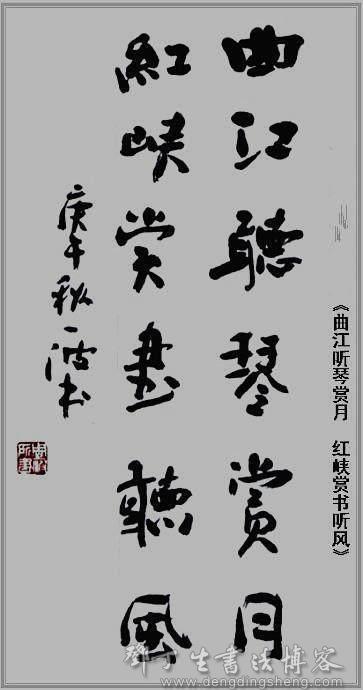 《曲江听琴赏月 红峡赏书听风》
曲江聽琴賞月
紅峡赏書聽風
庚午秋
鄧丁生書法博客
www.dengdingsheng.com